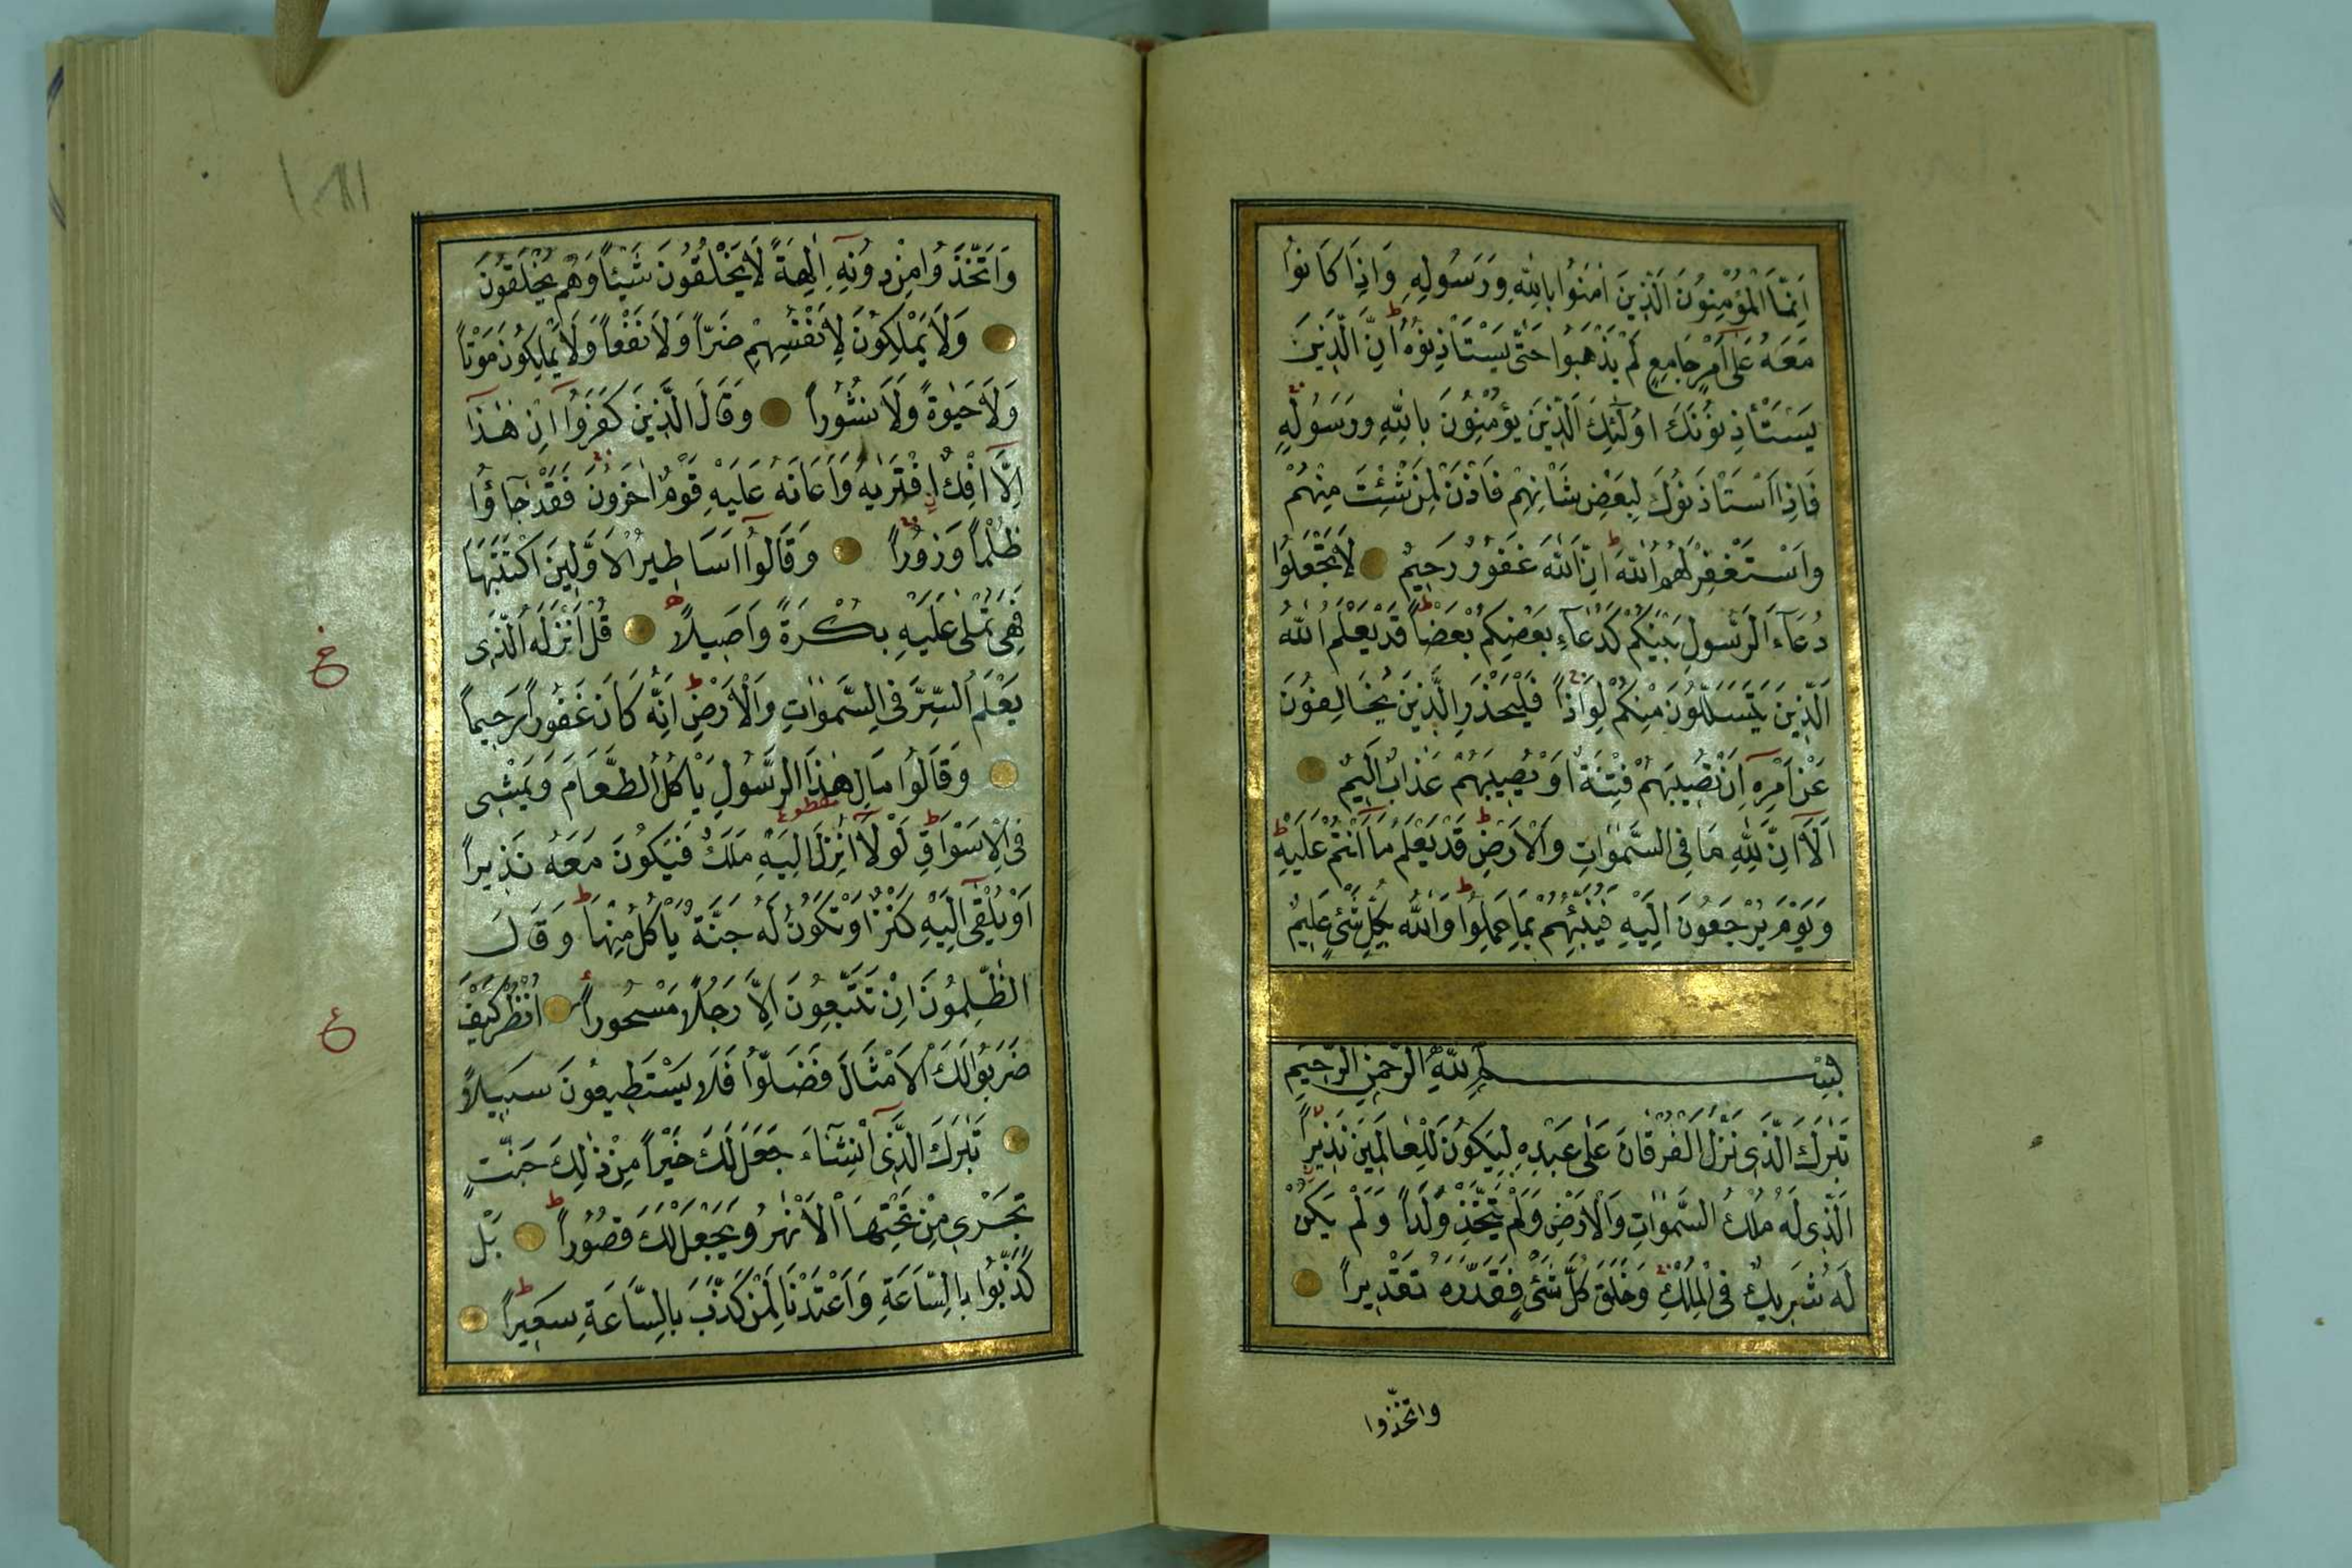 اِنَّمَا الْمُؤْمِنُونَ الَّذِينَ اٰمَنُوا بِاللّٰهِ وَرَسُولِهِ وَاِذَا كَانُوا
مَعَهُ عَلٰى اَمْرٍ جَامِعٍ لَمْ يَذْهَبُوا حَتّٰى يَسْتَاْذِنُوهُ ط اِنَّ الَّذِينَ
يَسْتَأْذِنُونَكَ اُولٰئِكَ الَّذِينَ يُؤْمِنُونَ بِاللّٰهِ وَرَسُولِهِ
فَاِذَا اسْتَاْذَنُوكَ لِبَعْضِ شَاْنِهِمْ فَاْذَنْ لِمَنْ شِئْتَ مِنْهُمْ
وَاسْتَغْفِرْ لَهُمُ اللّٰهَ ط اِنَّ اللّٰهَ غَفُورٌ رَحِيمٌ لَا تَجْعَلُوا
دُعَآءَ الرَّسُولِ بَيْنَكُمْ كَدُعَآءِ بَعْضِكُمْ بَعْضاً ط قَدْ يَعْلَمُ اللّٰهُ
الَّذِينَ يَتَسَلَّلُونَ مِنْكُمْ لِوَاذاً فَلْيَحْذَرِ الَّذِينَ يُخَالِفُونَ
عَنْ اَمْرِهِ اَنْ تُصِيبَهُمْ فِتْنَةٌ اَوْ يُصِيبَهُمْ عَذَابٌ اَلِيمٌ
اَلَآ اِنَّ لِلّٰهِ مَا فِى السَّمٰوَاتِ وَالْاَرْضِ ط قَدْ يَعْلَمُ مَآ اَنْتُمْ عَلَيْهِ ط
وَيَوْمَ يُرْجَعُونَ اِلَيْهِ فَيُنَبِّئُهُمْ بِمَا عَمِلُوا ط وَاللّٰهُ بِكُلِّ شَىْءٍ عَلِيمٌ
بِسْمِ اللّٰهِ الرَّحْمٰنِ الرَّحِيمِ
تَبٰرَكَ الَّذِى نَزَّلَ الْفُرْقَانَ عَلٰى عَبْدِهِ لِيَكُونَ لِلْعَالَمِينَ نَذِيراً
الَّذِى لَهُ مُلْكُ السَّمٰوَاتِ وَالْاَرْضِ وَلَمْ يَتَّخِذْ وَلَداً وَلَمْ يَكُنْ
لَهُ شَرِيكٌ فِى الْمُلْكِ وَخَلَقَ كُلَّ شَىْءٍ فَقَدَّرَهُ تَقْدِيراً
واتخذوا
وَاتَّخَذُوا مِنْ دُونِهِ اٰلِهَةً لَا يَخْلُقُونَ شَيْئاً وَهُمْ يُخْلَقُونَ
وَلَا يَمْلِكُونَ لِاَنْفُسِهِمْ ضَرّاً وَلَا نَفْعاً وَلَا يَمْلِكُونَ مَوْتاً
وَلَا حَيٰوةً وَلَا نُشُوراً وَقَالَ الَّذِينَ كَفَرُوآ اِنْ هٰذَآ
اِلَّا اِفْكٌ افْتَرٰيهُ وَاَعَانَهُ عَلَيْهِ قَوْمٌ اٰخَرُونَ فَقَدْ جَاؤُا
ظُلْماً وَزُوراً وَقَالُوآ اَسَاطِيرُ الْاَوَّلِينَ اكْتَتَبَهَا
فَهِىَ تُمْلٰى عَلَيْهِ بُكْرَةً وَاَصِيلاً قُلْ اَنْزَلَهُ الَّذِى
يَعْلَمُ السِّرَّ فِى السَّمٰوَاتِ وَالْاَرْضِ ط اِنَّهُ كَانَ غَفُوراً رَحِيماً
وَقَالُوا مَالِ هٰذَا الرَّسُولِ يَاْكُلُ الطَّعَامَ وَيَمْشِى
فِى الْاَسْوَاقِ ط لَوْلَآ اُنْزِلَ اِلَيْهِ مَلَكٌ فَيَكُونَ مَعَهُ نَذِيراً
اَوْ يُلْقٰٓى اِلَيْهِ كَنْزٌ اَوْ تَكُونُ لَهُ جَنَّةٌ يَاْكُلُ مِنْهَا ط وَقَالَ
الظّٰلِمُونَ اِنْ تَتَّبِعُونَ اِلَّا رَجُلاً مَسْحُوراً اُنْظُرْ كَيْفَ
ضَرَبُوا لَكَ الْاَمْثَالَ فَضَلُّوا فَلَا يَسْتَطِيعُونَ سَبِيلاً
تَبٰرَكَ الَّذِىٓ اِنْ شَآءَ جَعَلَ لَكَ خَيْراً مِنْ ذٰلِكَ جَنّٰتٍ
تَجْرِى مِنْ تَحْتِهَا الْاَنْهٰرُ وَيَجْعَلْ لَكَ قُصُوراً ط بَلْ
كَذَّبُوا بِالسَّاعَةِ وَاَعْتَدْنَا لِمَنْ كَذَّبَ بِالسَّاعَةِ سَعِيراً ط
ع